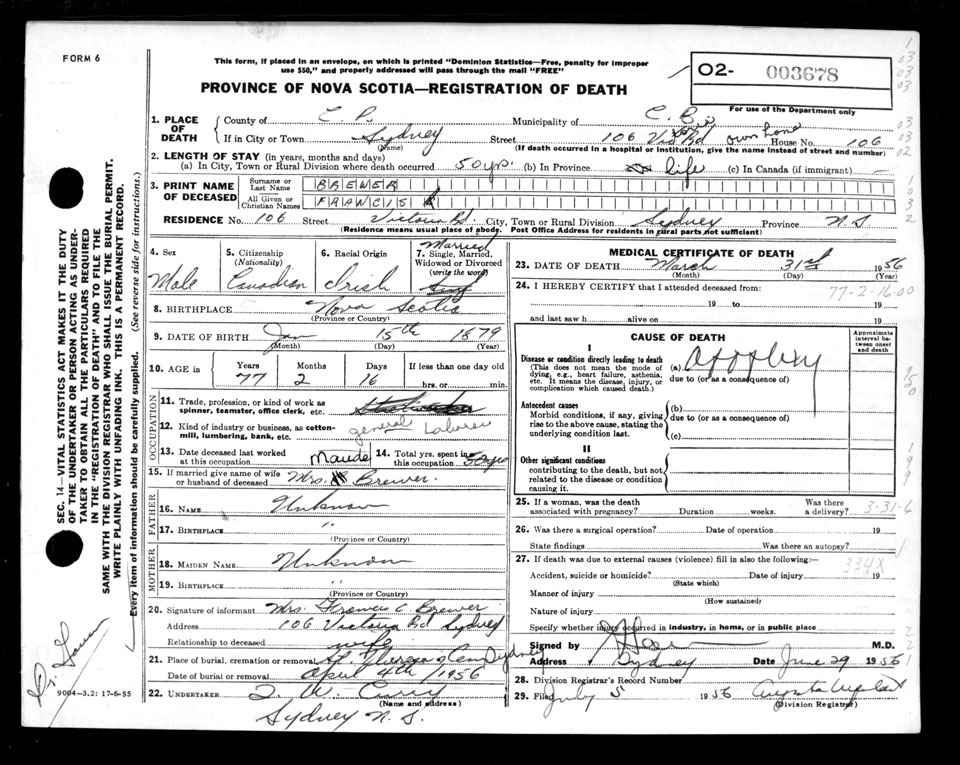 FORM 6
This form, if placed in an envelope, on which is printed "Dominion Statistics—Free, penalty for improper
use $50," and properly addressed will pass through the mail "FREE"
PROVINCE OF NOVA SCOTIA—REGISTRATION OF DEATH
O2- 003678
For use of the Department only
1. PLACE OF DEATH
County of C. B. Municipality of C. B.
If in City or Town Sydney Street 106 Vic Rd own home House No. 106
(Name) (If death occurred in a hospital or institution, give the name instead of street and number)
2. LENGTH OF STAY (in years, months and days)
(a) In City, Town or Rural Division where death occurred 50 yrs. (b) In Province life (c) In Canada (if immigrant) —
3. PRINT NAME OF DECEASED
Surname or Last Name BREWER
All Given or Christian Names FRANCIS
RESIDENCE No. 106 Street Victoria Rd. City, Town or Rural Division Sydney Province N.S.
(Residence means usual place of abode. Post Office Address for residents in rural parts not sufficient)
4. Sex Male
5. Citizenship (Nationality) Canadian
6. Racial Origin Irish
7. Single, Married, Widowed or Divorced (write the word) Married
8. BIRTHPLACE Nova Scotia
(Province or Country)
9. DATE OF BIRTH Jan 15th 1879
(Month) (Day) (Year)
10. AGE in Years 77 Months 2 Days 16 If less than one day old hrs. or min.
OCCUPATION
11. Trade, profession, or kind of work as spinner, teamster, office clerk, etc.
12. Kind of industry or business, as cotton-mill, lumbering, bank, etc. general Laborer
13. Date deceased last worked at this occupation
14. Total yrs. spent in this occupation 50 yrs
15. If married give name of wife or husband of deceased Mrs. Maude Brewer.
FATHER
16. NAME Unknown
17. BIRTHPLACE "
(Province or Country)
MOTHER
18. MAIDEN NAME Unknown
19. BIRTHPLACE "
(Province or Country)
20. Signature of informant Mrs. Francis C. Brewer
Address 106 Victoria Rd Sydney
Relationship to deceased wife
21. Place of burial, cremation or removal Sydney
Date of burial or removal April 4th/1956
22. UNDERTAKER
(Name and address)
Sydney N.S.
MEDICAL CERTIFICATE OF DEATH
23. DATE OF DEATH March 31st 1956
(Month) (Day) (Year)
24. I HEREBY CERTIFY that I attended deceased from: 77-2-16-00
19 to 19
and last saw h alive on 19
CAUSE OF DEATH
Approximate interval between onset and death
I
Disease or condition directly leading to death
(This does not mean the mode of dying, e.g., heart failure, asthenia, etc. It means the disease, injury, or complication which caused death.)
(a) apoplexy
due to (or as a consequence of)
Antecedent causes
Morbid conditions, if any, giving rise to the above cause, stating the underlying condition last.
(b)
due to (or as a consequence of)
(c)
II
Other significant conditions
contributing to the death, but not related to the disease or condition causing it.
25. If a woman, was the death associated with pregnancy? Duration weeks. Was there a delivery? 3-31-6
26. Was there a surgical operation? Date of operation 19
State findings Was there an autopsy?
27. If death was due to external causes (violence) fill in also the following: 334X
Accident, suicide or homicide? Date of injury 19
(State which)
Manner of injury
(How sustained)
Nature of injury
Specify whether injury occurred in industry, in home, or in public place
Signed by M.D.
Address Sydney Date June 29 1956
28. Division Registrar's Record Number
29. Filed July 5 1956
(Division Registrar)
SEC. 14—VITAL STATISTICS ACT MAKES IT THE DUTY
OF THE UNDERTAKER OR PERSON ACTING AS UNDER-
TAKER TO OBTAIN ALL THE PARTICULARS REQUIRED
IN THE "REGISTRATION OF DEATH" AND TO FILE THE
SAME WITH THE DIVISION REGISTRAR WHO SHALL ISSUE THE BURIAL PERMIT.
WRITE PLAINLY WITH UNFADING INK. THIS IS A PERMANENT RECORD.
Every item of information should be carefully supplied. (See reverse side for instructions.)
9004-3.2: 17-6-55